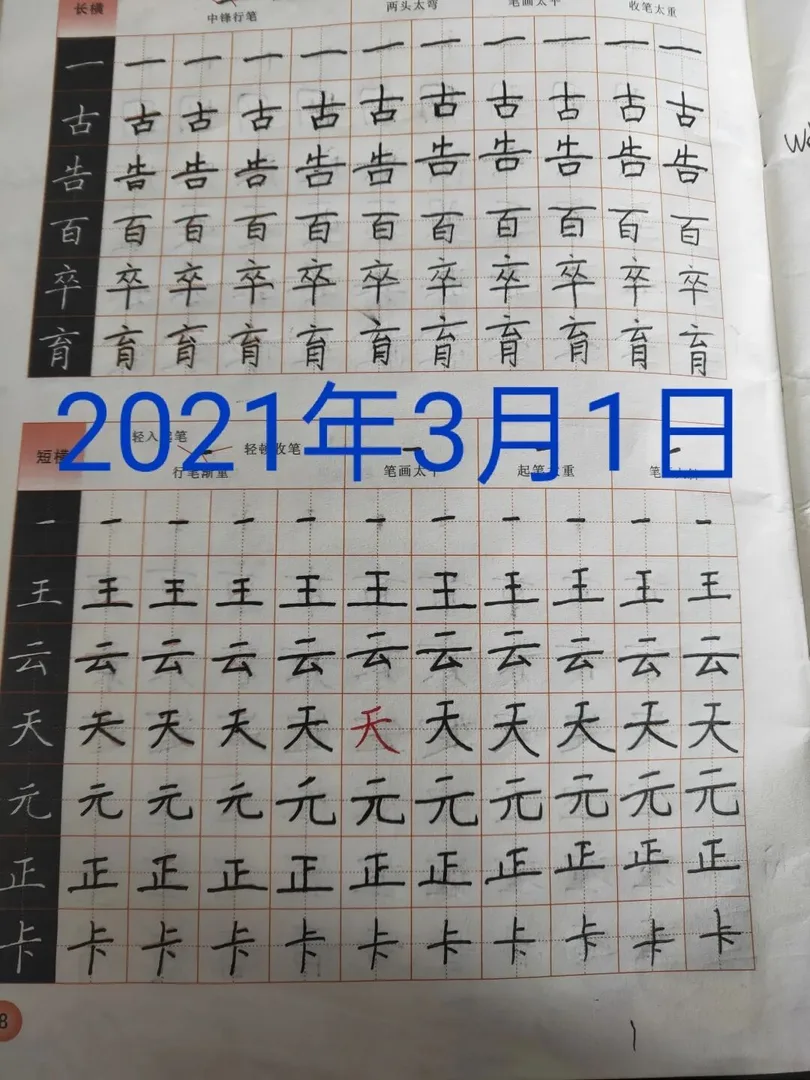 长横 中锋行笔 两头太弯 笔画太平 收笔太重
一 一 一 一 一 一 一 一 一 一 一
古 古 古 古 古 古 古 古 古 古 古
告 告 告 告 告 告 告 告 告 告 告
百 百 百 百 百 百 百 百 百 百 百
卒 卒 卒 卒 卒 卒 卒 卒 卒 卒 卒
育 育 育 育 育 育 育 育 育 育 育
2021年3月1日
短横 轻入起笔 行笔渐重 轻顿收笔 笔画太平 起笔太重
一 一 一 一 一 一 一 一 一 一 一
王 王 王 王 王 王 王 王 王 王 王
云 云 云 云 云 云 云 云 云 云 云
天 天 天 天 天 天 天 天 天 天 天
元 元 元 元 元 元 元 元 元 元 元
正 正 正 正 正 正 正 正 正 正 正
卡 卡 卡 卡 卡 卡 卡 卡 卡 卡 卡
8